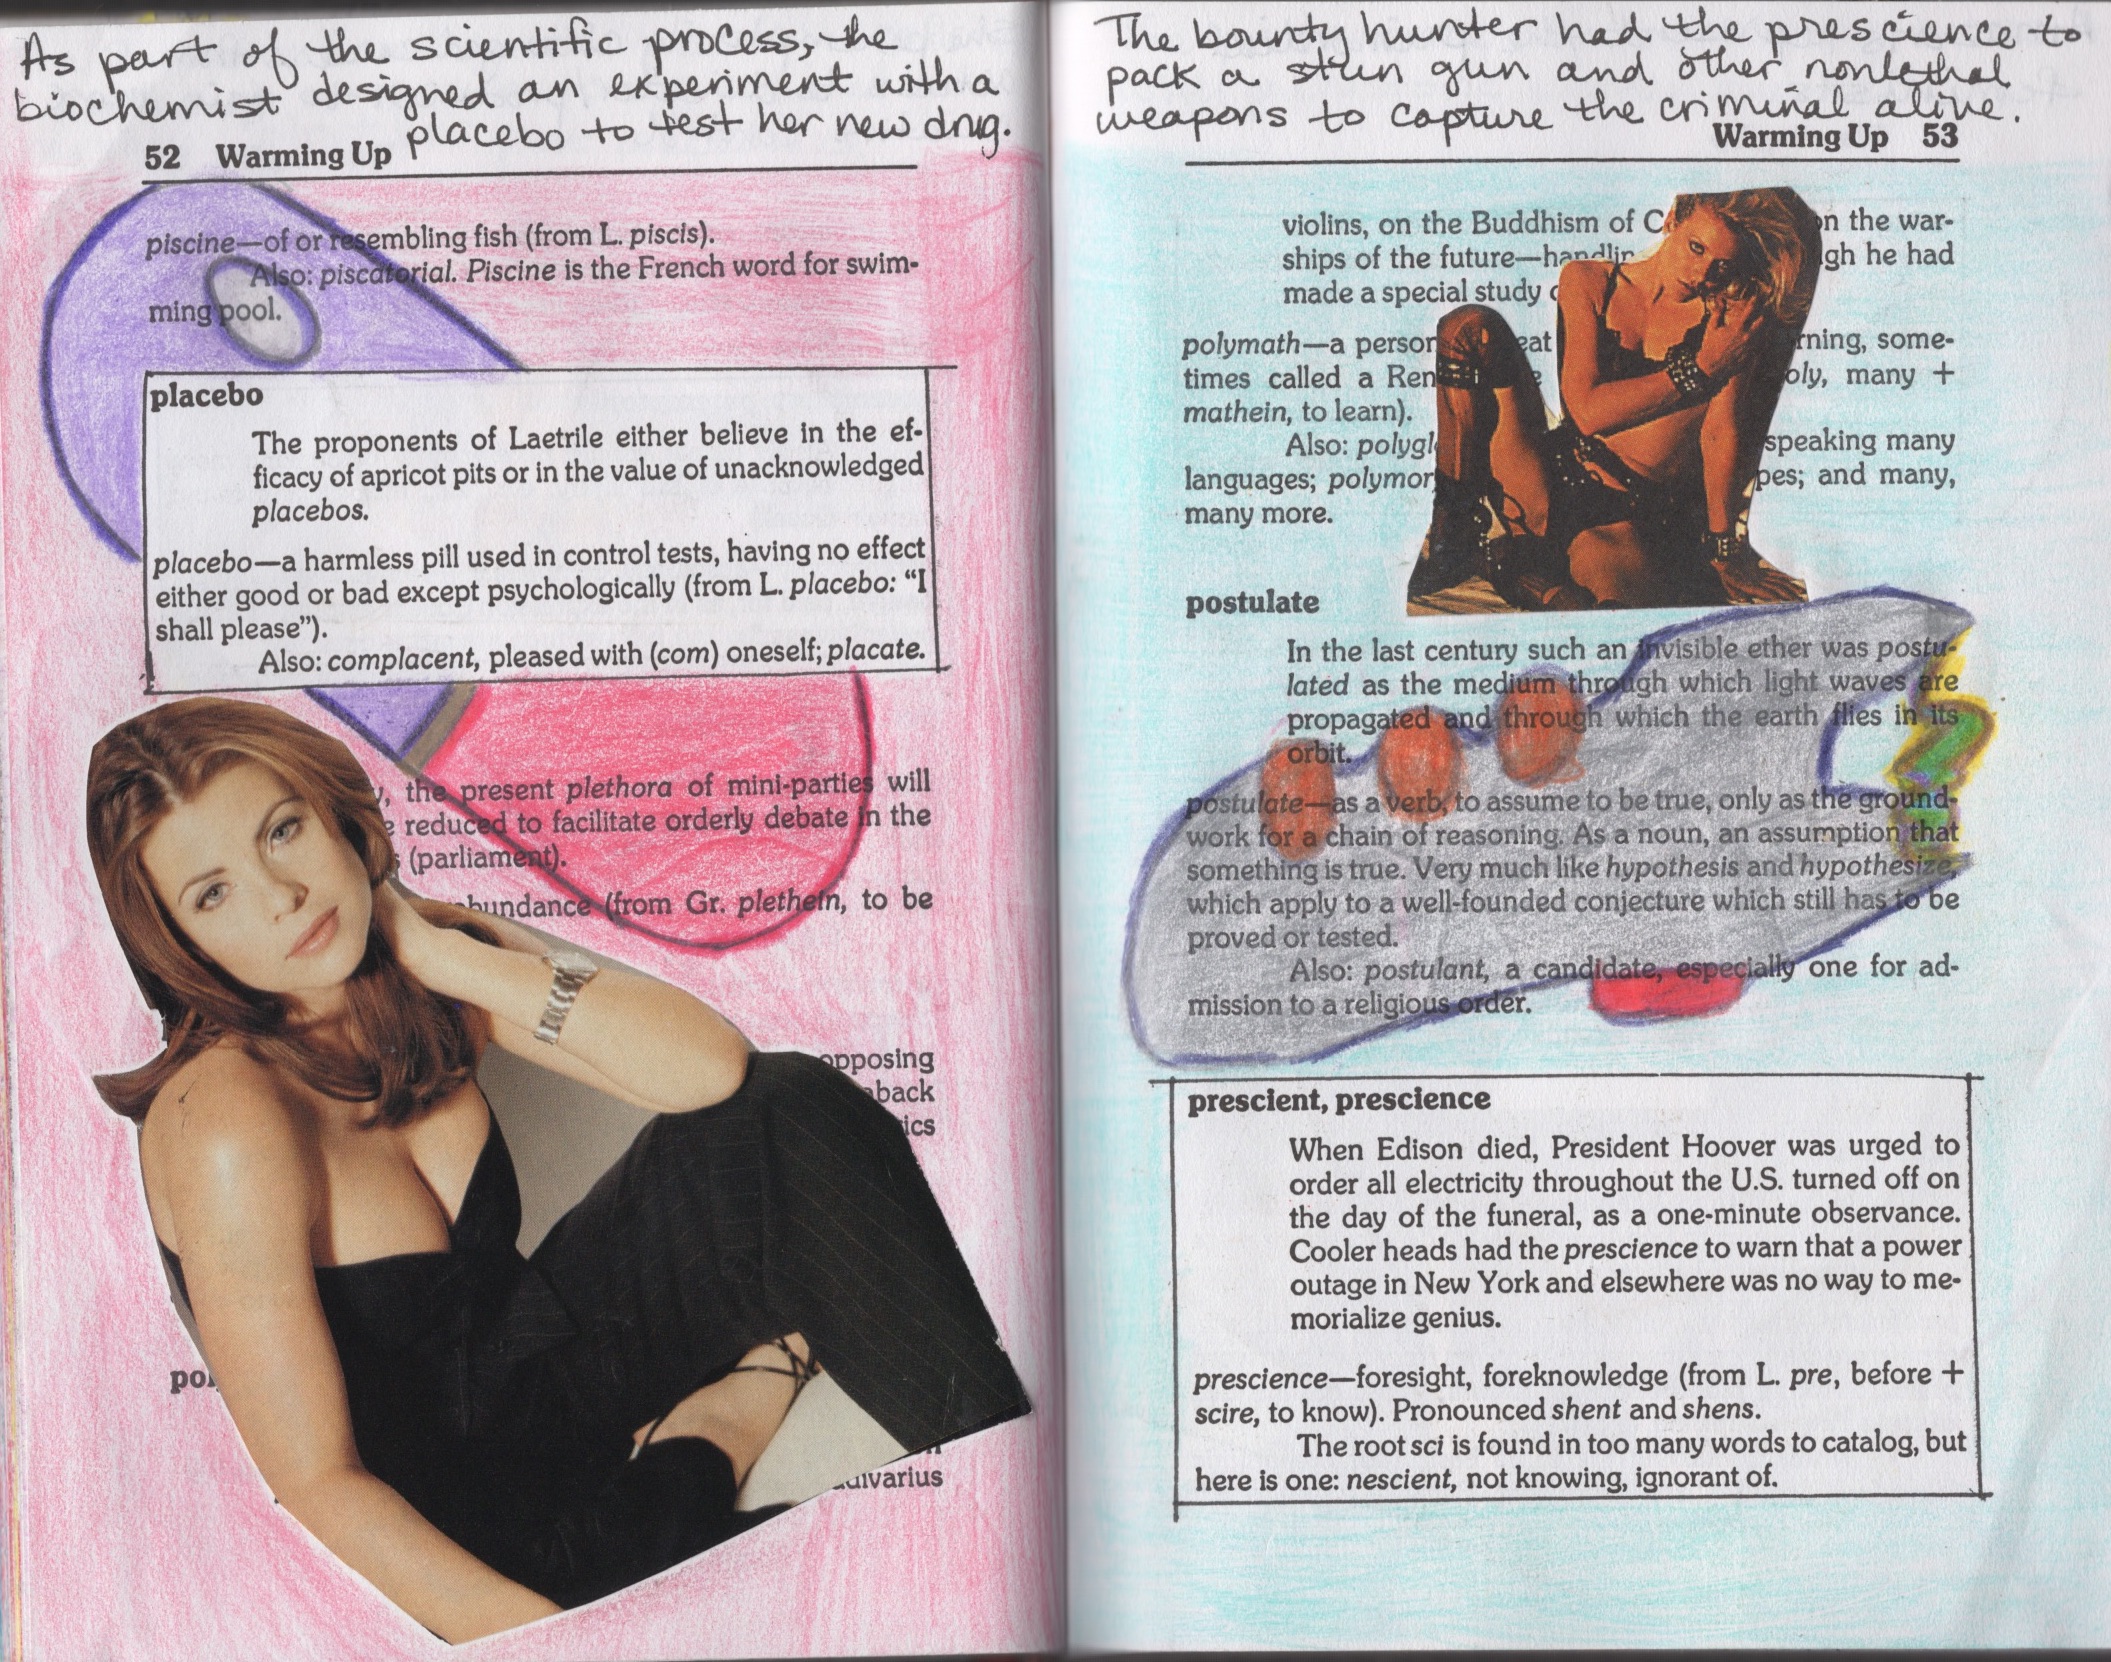 As part of the scientific process, the
biochemist designed an experiment with a
placebo to test her new drug.
52 Warming Up
piscine—of or resembling fish (from L. piscis).
Also: piscatorial. Piscine is the French word for swim-
ming pool.
placebo
The proponents of Laetrile either believe in the ef-
ficacy of apricot pits or in the value of unacknowledged
placebos.
placebo—a harmless pill used in control tests, having no effect
either good or bad except psychologically (from L. placebo: “I
shall please”).
Also: complacent, pleased with (com) oneself; placate.
the present plethora of mini-parties will
reduced to facilitate orderly debate in the
(parliament).
(from Gr. plethein, to be
opposing
The bounty hunter had the prescience to
pack a stun gun and other nonlethal
weapons to capture the criminal alive.
Warming Up 53
violins, on the Buddhism of on the war-
ships of the future— he had
made a special study
polymath—a person rning, some-
times called a many +
mathein, to learn).
Also: speaking many
languages; and many,
many more.
postulate
In the last century such an invisible ether was postu-
lated as the medium through which light waves are
propagated and through which the earth flies in its
orbit.
postulate—as a verb, to assume to be true, only as the ground-
work for a chain of reasoning. As a noun, an assumption that
something is true. Very much like hypothesis and hypothesize,
which apply to a well-founded conjecture which still has to be
proved or tested.
Also: postulant, a candidate, especially one for ad-
mission to a religious order.
prescient, prescience
When Edison died, President Hoover was urged to
order all electricity throughout the U.S. turned off on
the day of the funeral, as a one-minute observance.
Cooler heads had the prescience to warn that a power
outage in New York and elsewhere was no way to me-
morialize genius.
prescience—foresight, foreknowledge (from L. pre, before +
scire, to know). Pronounced shent and shens.
The root sci is found in too many words to catalog, but
here is one: nescient, not knowing, ignorant of.